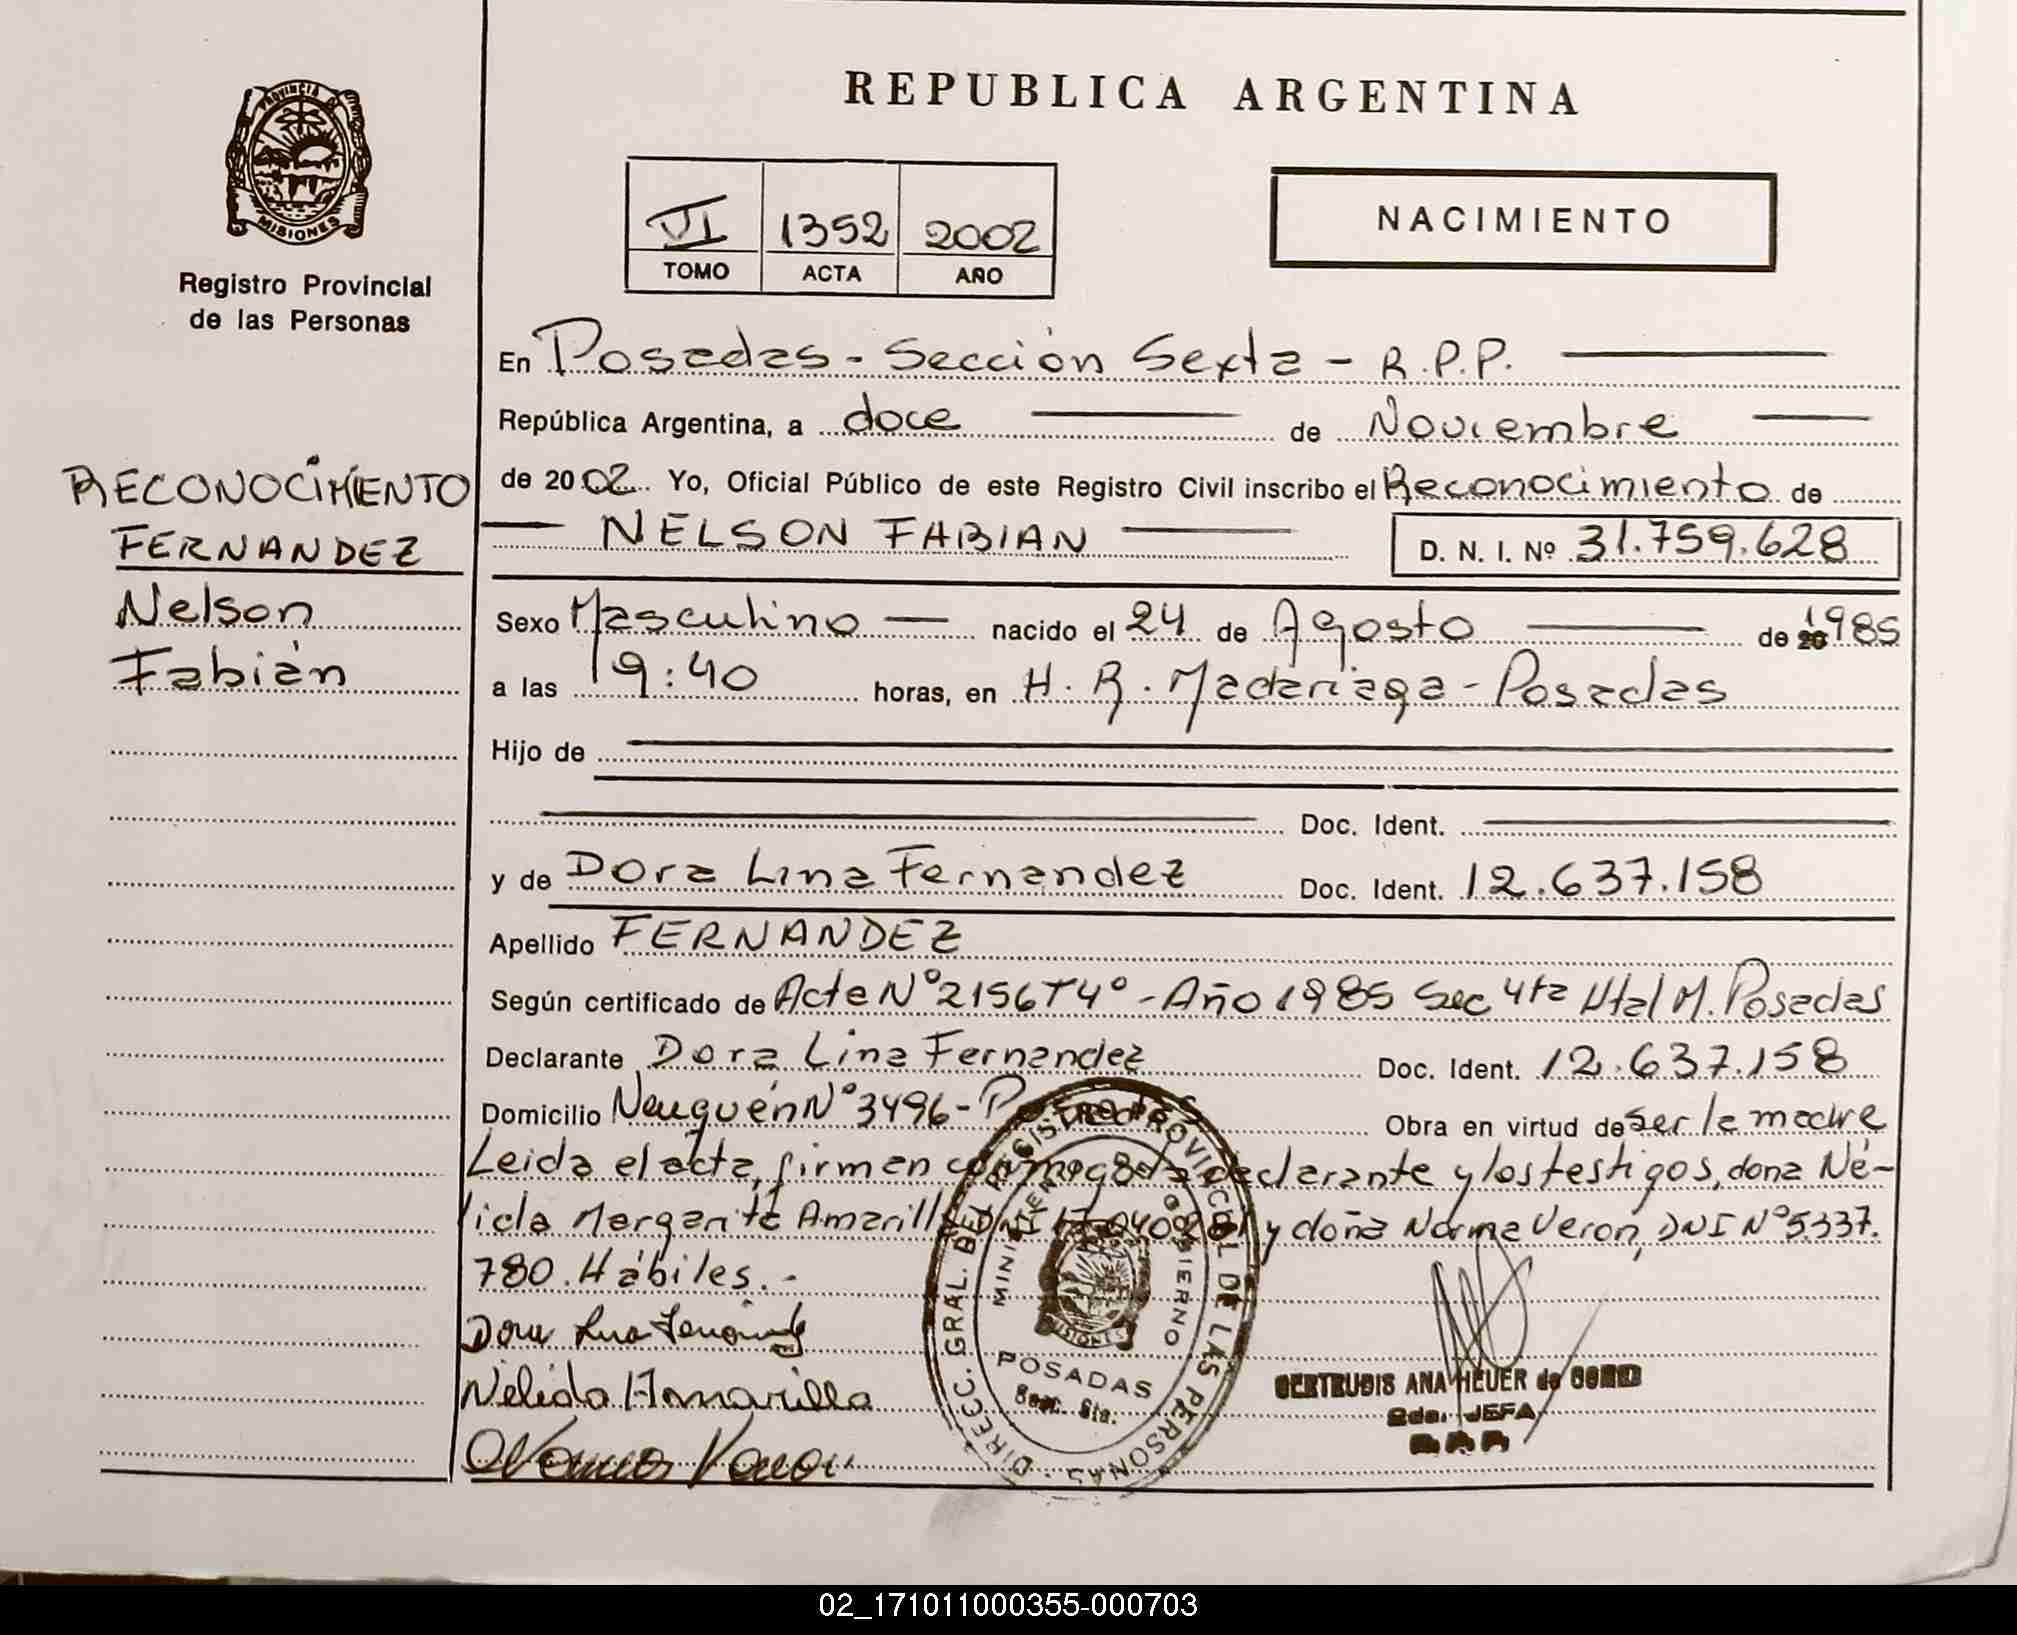 REPUBLICA ARGENTINA
PROVINCIA DE
MISIONES
Registro Provincial
de las Personas
VI 1352 2002
TOMO ACTA AÑO
NACIMIENTO
En Posadas - Sección Sexta - R.P.P.
República Argentina, a doce de Noviembre
de 2002 Yo, Oficial Público de este Registro Civil inscribo el Reconocimiento de
NELSON FABIAN D. N. I. Nº 31.759.628
RECONOCIMIENTO
FERNANDEZ
Nelson
Fabián
Sexo Masculino nacido el 24 de Agosto de 1985
a las 19:40 horas, en H. R. Madariaga - Posadas
Hijo de
Doc. Ident.
y de Dora Lina Fernandez Doc. Ident. 12.637.158
Apellido FERNANDEZ
Según certificado de Acta Nº 2156 T4º - Año 1985 Sec 4ta Htal M. Posadas
Declarante Dora Lina Fernandez Doc. Ident. 12.637.158
Domicilio Neuquén Nº 3496 - Obra en virtud de ser la madre
Leida el acta, firman conmigo la declarante y los testigos, doña Né-
lida Margarita Amarilla y doña Norma Veron, DNI Nº 5.337.
780. Hábiles.-
Dora Lina Fernandez
Nélida Amarilla
Norma Veron
DIRECC. GRAL. DEL REGISTRO PROVINCIAL DE LAS PERSONAS
GOBIERNO
POSADAS
MISIONES
GERTRUDIS ANA HEUER de
2da. JEFA
02_171011000355-000703